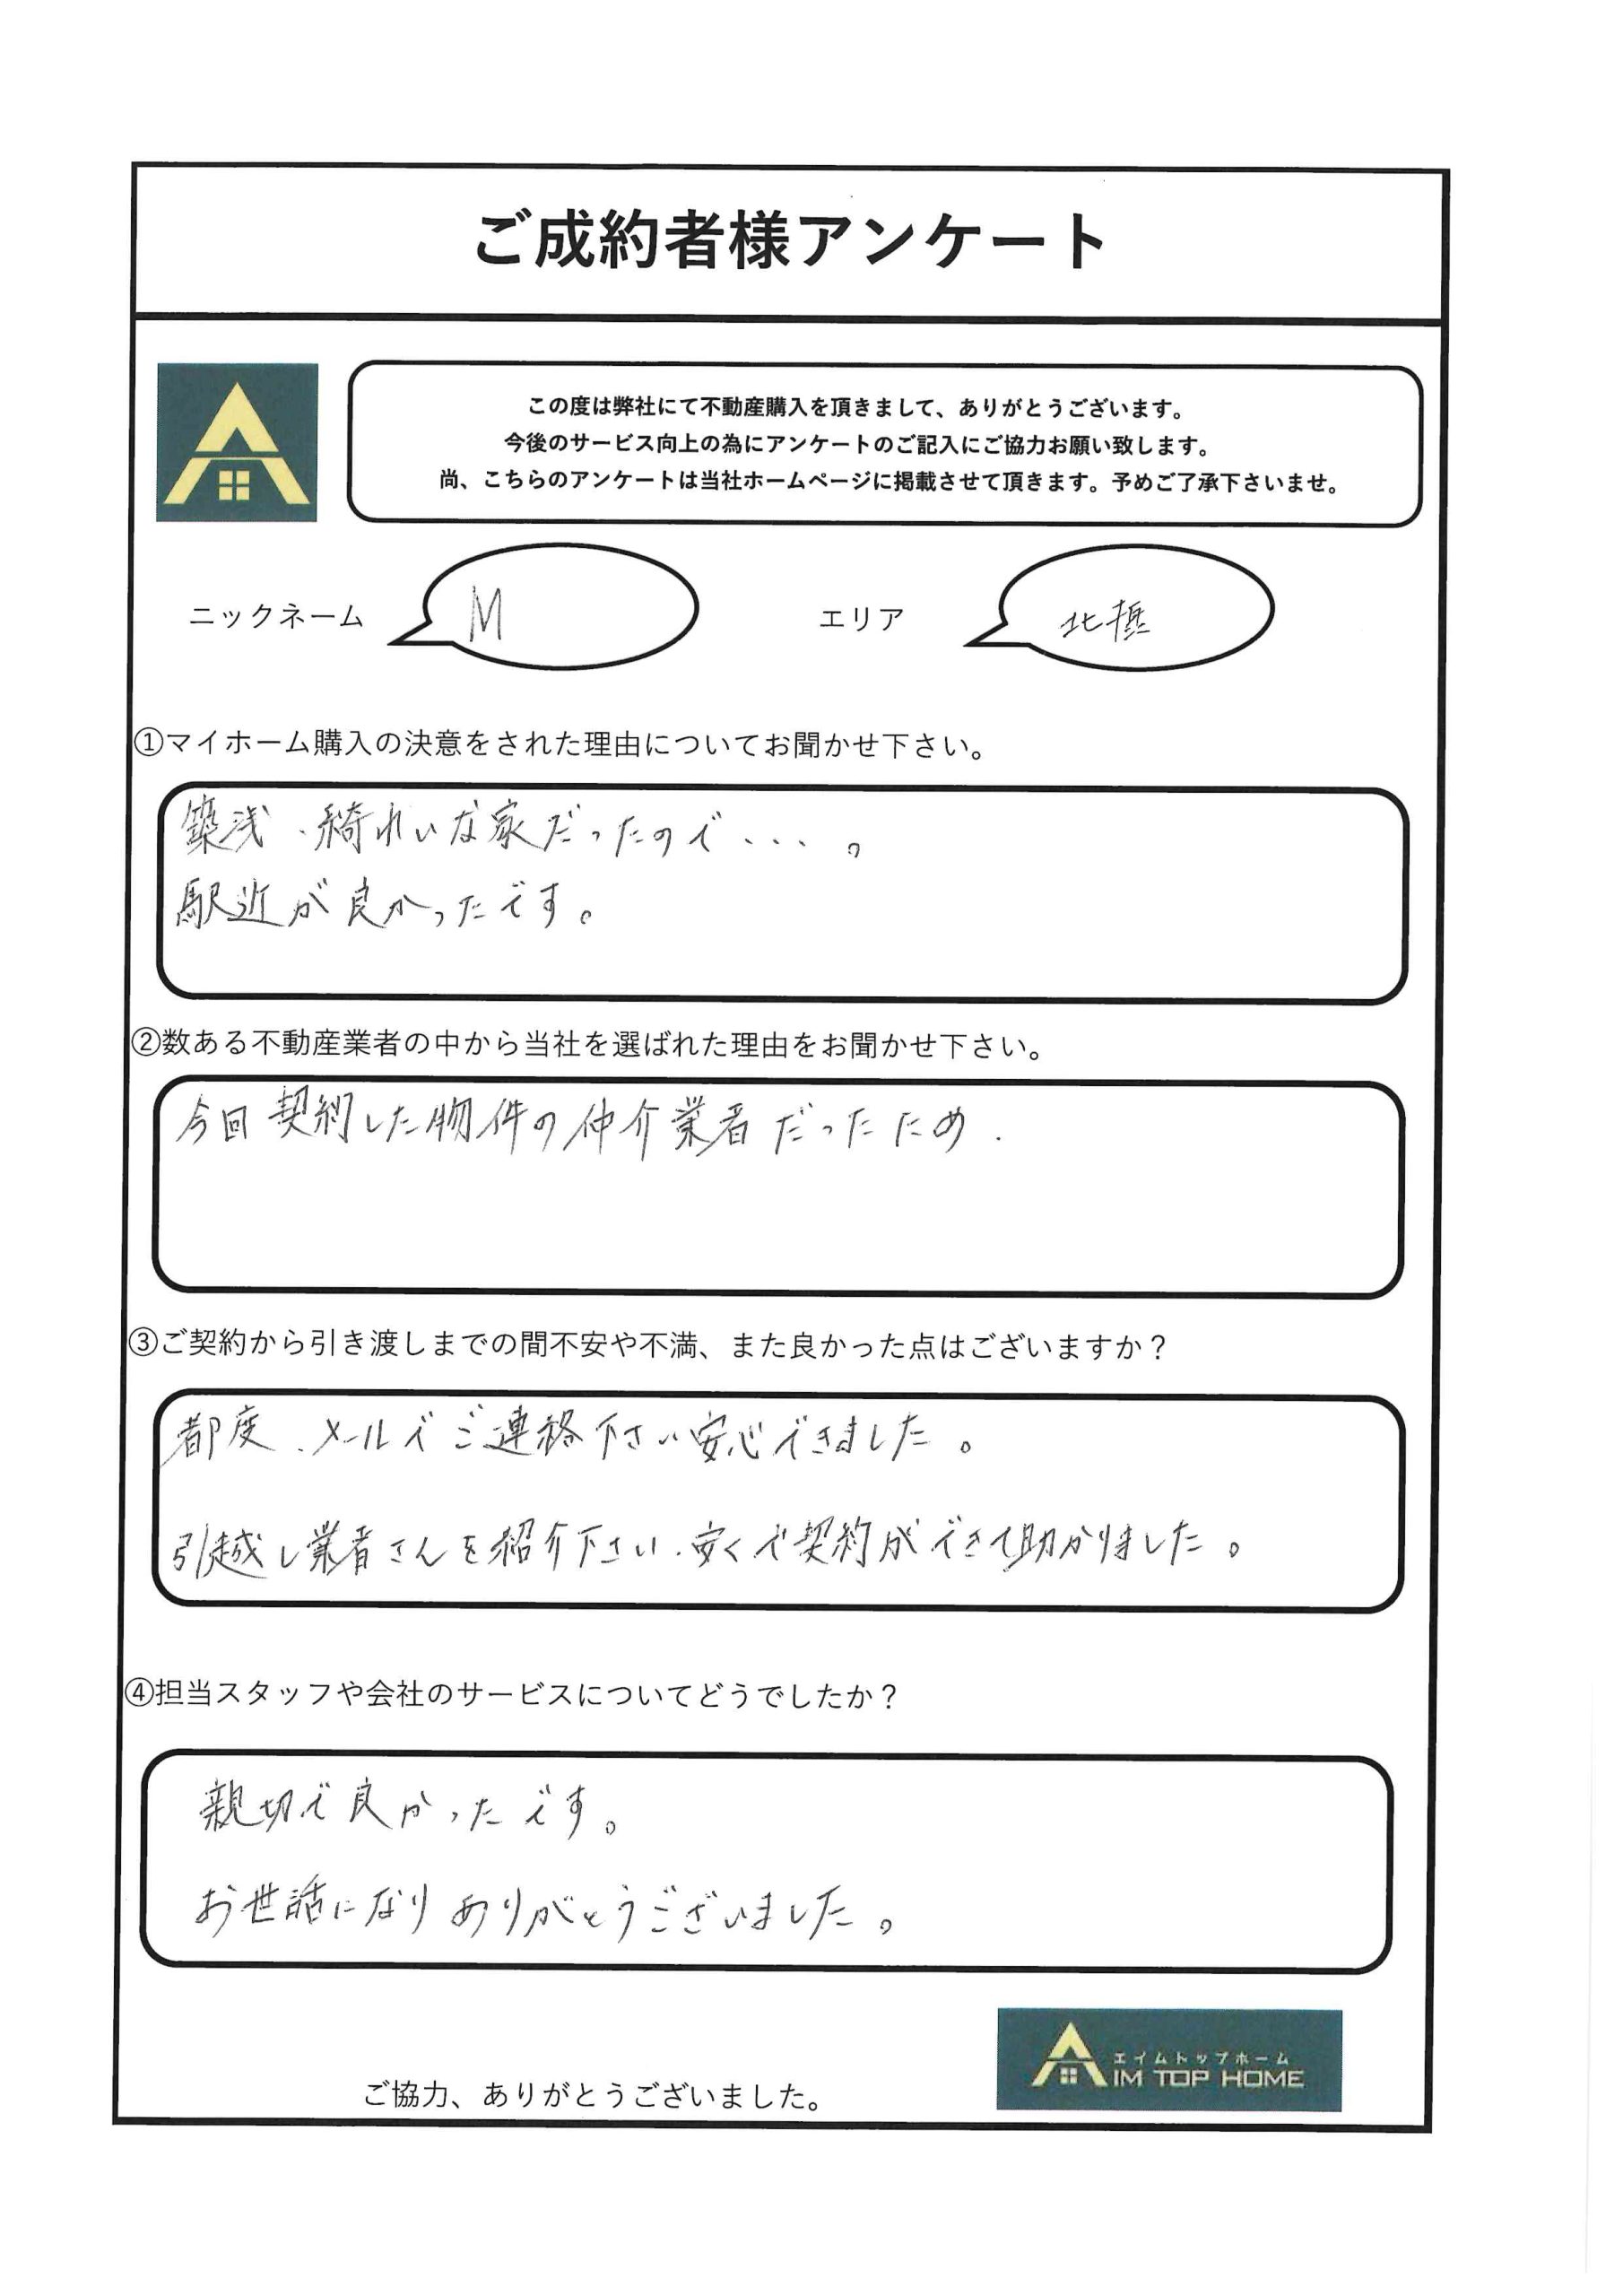 ご成約者様アンケート
この度は弊社にて不動産購入を頂きまして、ありがとうございます。
今後のサービス向上の為にアンケートのご記入にご協力お願い致します。
尚、こちらのアンケートは当社ホームページに掲載させて頂きます。予めご了承下さいませ。
ニックネーム M エリア 北
①マイホーム購入の決意をされた理由についてお聞かせ下さい。
築浅、綺れいな家だったので・・・。
駅近が良かったです。
②数ある不動産業者の中から当社を選ばれた理由をお聞かせ下さい。
今回契約した物件の仲介業者だったため.
③ご契約から引き渡しまでの間不安や不満、また良かった点はございますか？
都度、メールでご連絡下さい安心できました。
引越し業者さんを紹介下さい、安くで契約ができて助かりました。
④担当スタッフや会社のサービスについてどうでしたか？
親切で良かったです。
お世話になりありがとうございました。
エイムトップホーム
AIM TOP HOME
ご協力、ありがとうございました。